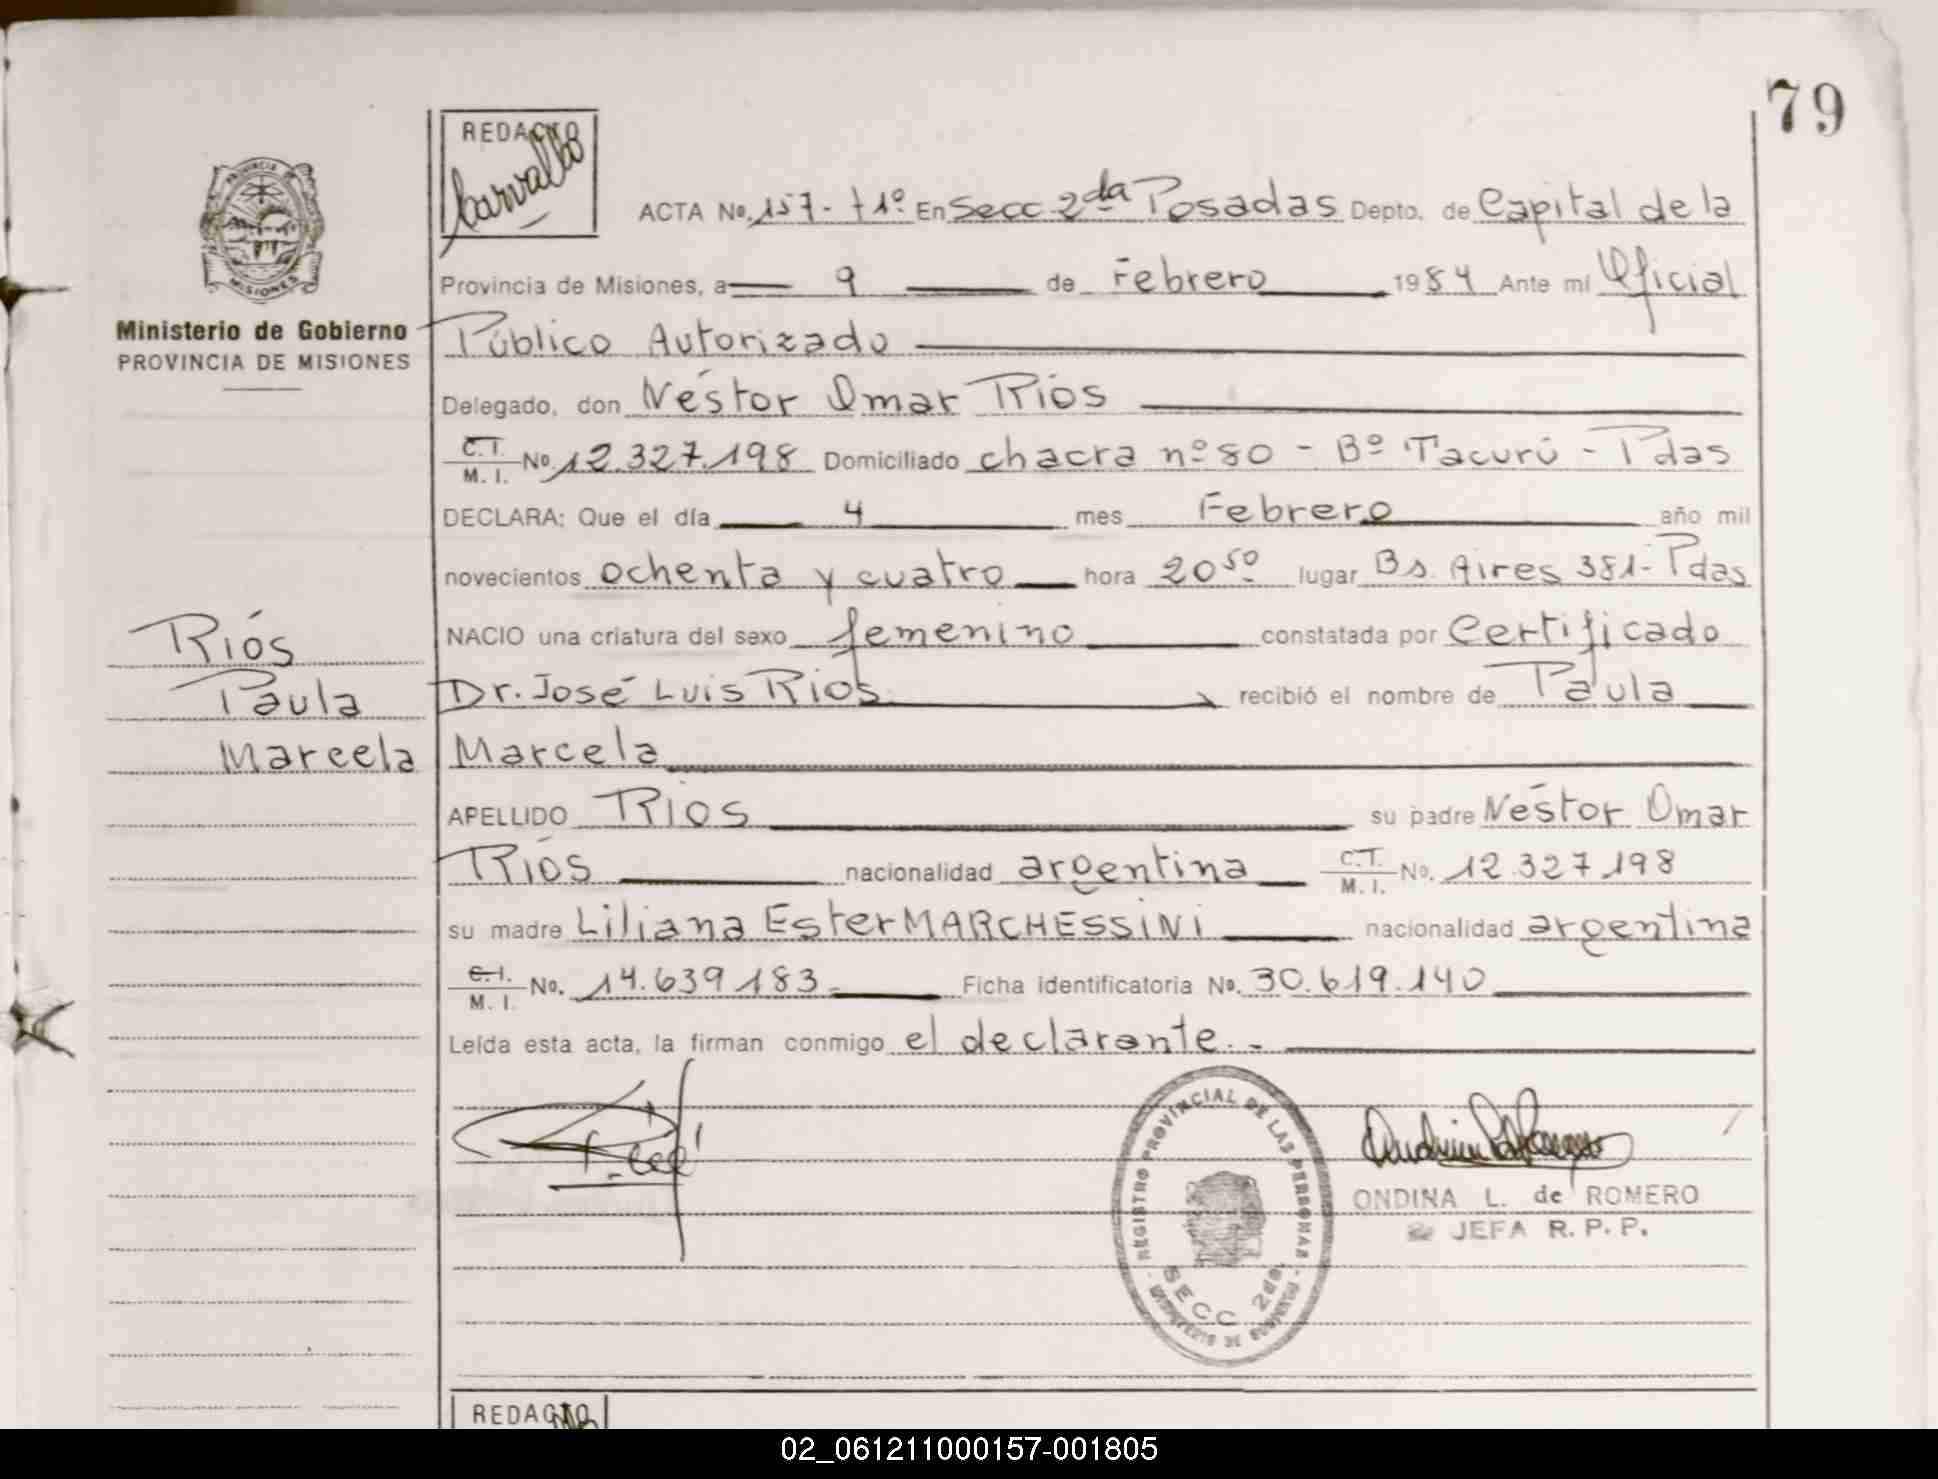 79
REDACTO
Carvallo
PROVINCIA DE
MISIONES
Ministerio de Gobierno
PROVINCIA DE MISIONES
ACTA No. 157- t 1º En Secc 2da Posadas Depto. de Capital de la
Provincia de Misiones, a 9 de Febrero 1984 Ante mí Oficial
Público Autorizado
Delegado, don Néstor Omar Ríos
C.I. M. I. No. 12.327.198 Domiciliado chacra nº 80 - Bº Tacurú - Pdas
DECLARA: Que el día 4 mes Febrero año mil
novecientos ochenta y cuatro hora 20⁵⁰ lugar Bs. Aires 381- Pdas
Ríos
NACIO una criatura del sexo femenino constatada por Certificado
Paula
Dr. José Luis Ríos recibió el nombre de Paula
Marcela
Marcela
APELLIDO Ríos su padre Néstor Omar
Ríos nacionalidad argentina C.I. M. I. No. 12.327.198
su madre Liliana Ester MARCHESSINI nacionalidad argentina
C.I. M. I. No. 14.639.183 Ficha identificatoria No. 30.619.140
Leída esta acta, la firman conmigo el declarante.-
REGISTRO PROVINCIAL DE LAS PERSONAS
SECC. 2da.
MINISTERIO DE GOBIERNO
ONDINA L. de ROMERO
JEFA R. P. P.
REDACTO
02_061211000157-001805